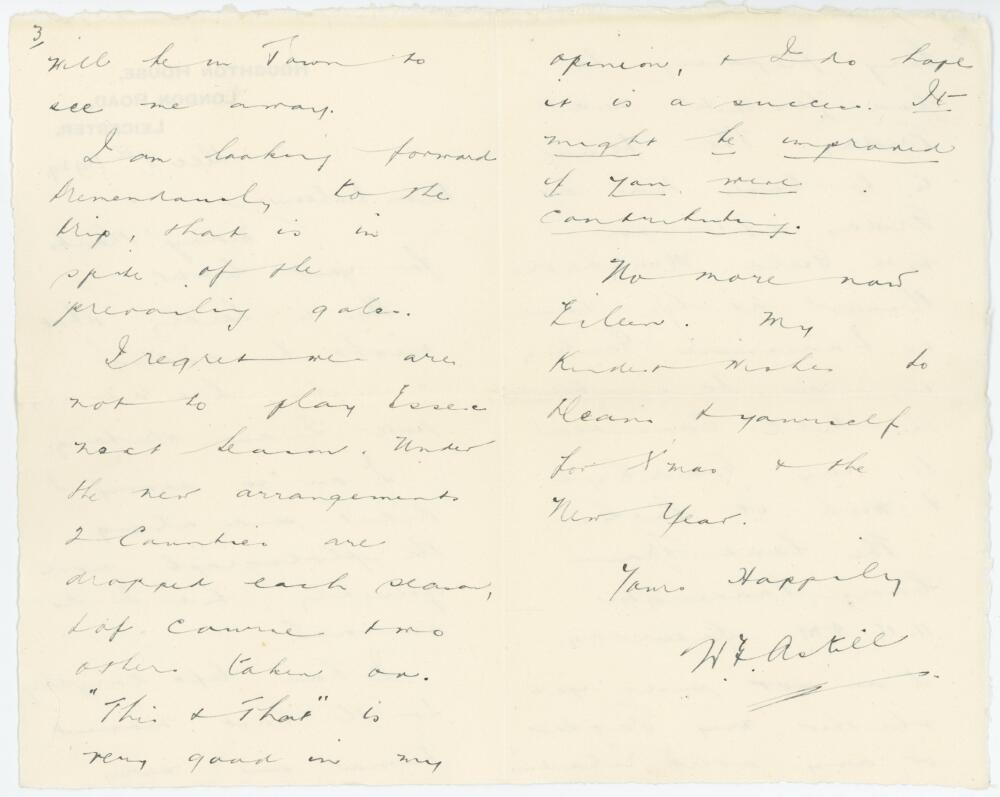 3
will be in Town to
see me away.
I am looking forward
tremendously to the
trip, that is in
spite of the
prevailing gales.
I regret we are
not to play Essex
next Season. Under
the new arrangements
2 Counties are
dropped each season,
& of course two
others taken on.
"This & That" is
very good in my
opinion, & I do hope
it is a success. It
might be improved
if you were
contributing.
No more now
Eileen. My
Kindest Wishes to
& yourself
for Xmas & the
New Year.
Yours Happily
W.F. Askill
HOUGHTON HOUSE,
LONDON ROAD,
LEICESTER.